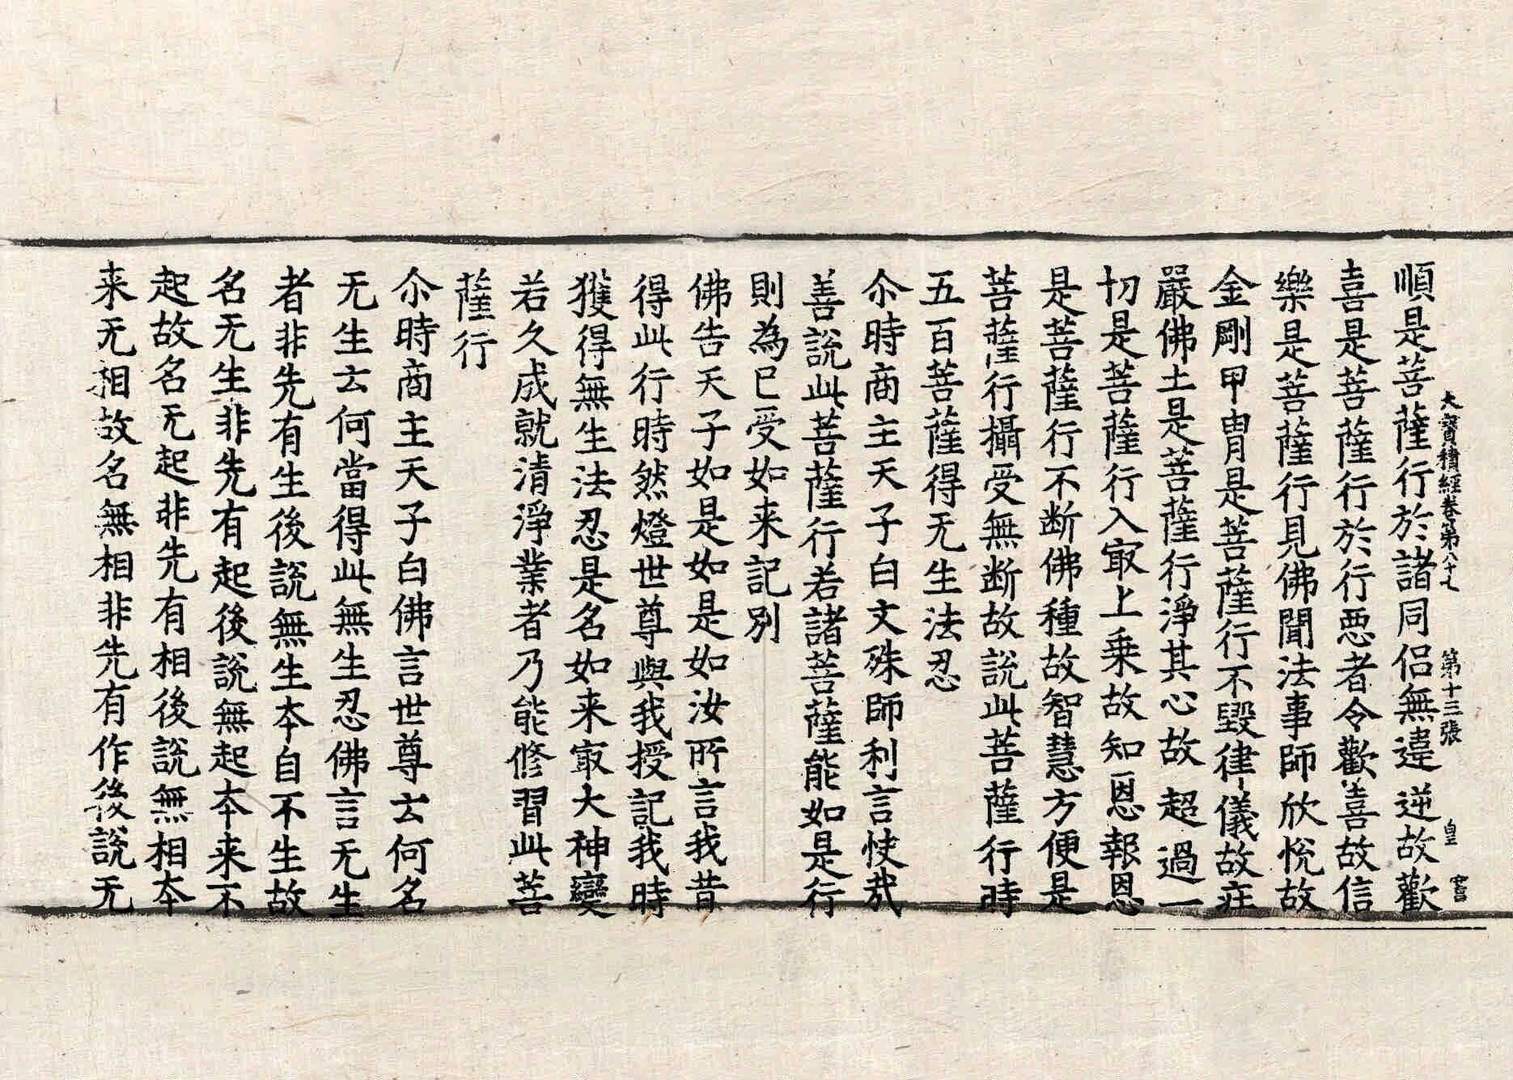 大寶積經卷第八十七 第十三張 皇
順是菩薩行於諸同侶無違逆故歡
喜是菩薩行於行惡者令歡喜故信
樂是菩薩行見佛聞法事師欣悅故
金剛甲冑是菩薩行不毀律儀故莊
嚴佛土是菩薩行淨其心故超過一
切是菩薩行入㝡上乗故知恩報恩
是菩薩行不断佛種故智慧方便是
菩薩行攝受無断故說此菩薩行時
五百菩薩得无生法忍
尒時商主天子白文殊師利言快㢤
善說此菩薩行若諸菩薩能如是行
則為已受如来記別
佛告天子如是如是如汝所言我昔
得此行時然燈世尊與我授記我時
獲得無生法忍是名如来㝡大神變
若久成就清淨業者乃能修習此菩
薩行
尒時商主天子白佛言世尊云何名
无生云何當得此無生忍佛言无生
者非先有生後說無生夲自不生故
名无生非先有起後說無起夲来不
起故名无起非先有相後說無相夲
来无相故名無相非先有作後說无